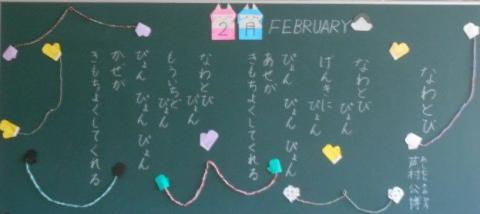 2月 FEBRUARY
なわとび
芦村公博
なわとび
ぴょん
げんきに
ぴょん
ぴょん ぴょん ぴょん
あせが
きもちよくしてくれる
なわとび
ぴょん
もういちど
ぴょん
ぴょん ぴょん ぴょん
かぜが
きもちよくしてくれる